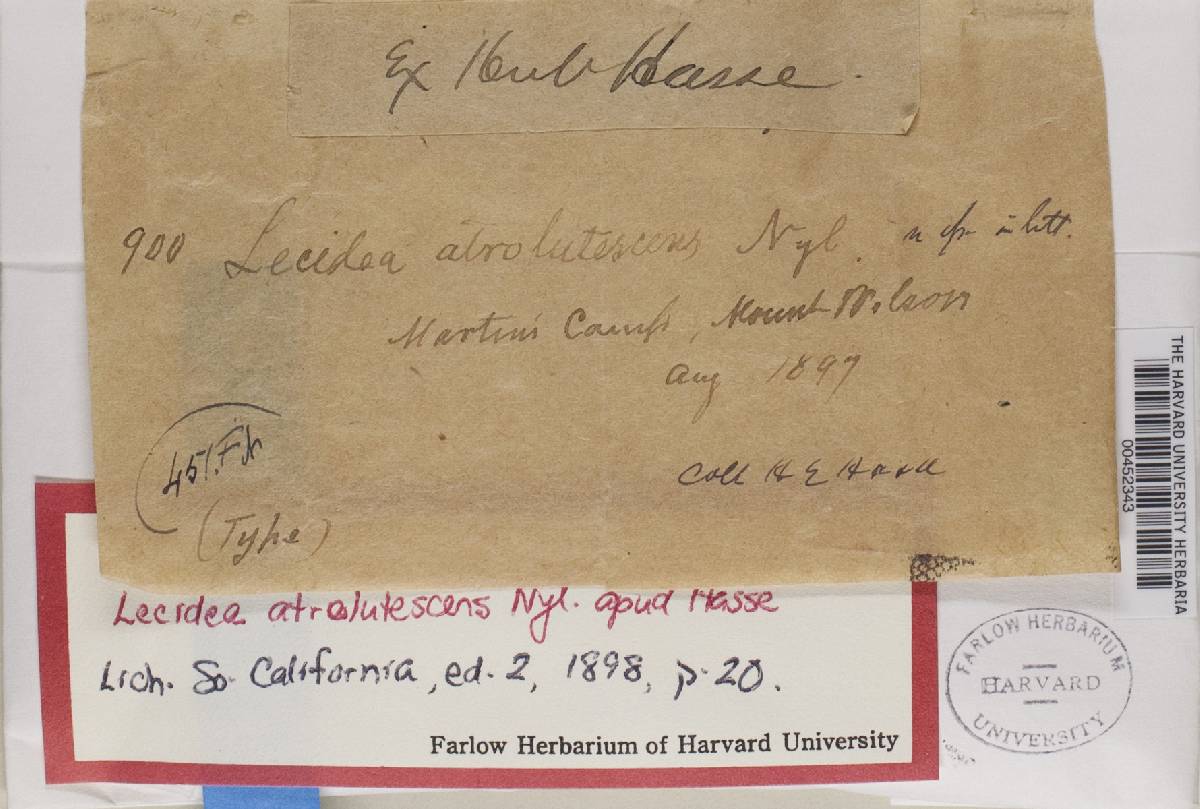 Ex Herb Hasse.
900 Lecidea atrolutescens Nyl. n sp. in litt.
Martins Camp, Mount Wilson
Aug 1897
Coll H E Hasse
(Type)
Lecidea atrolutescens Nyl. apud Hasse
Lich. So. California, ed. 2, 1898, p. 20.
Farlow Herbarium of Harvard University
THE HARVARD UNIVERSITY HERBARIA
00452343
FARLOW HERBARIUM
HARVARD
UNIVERSITY